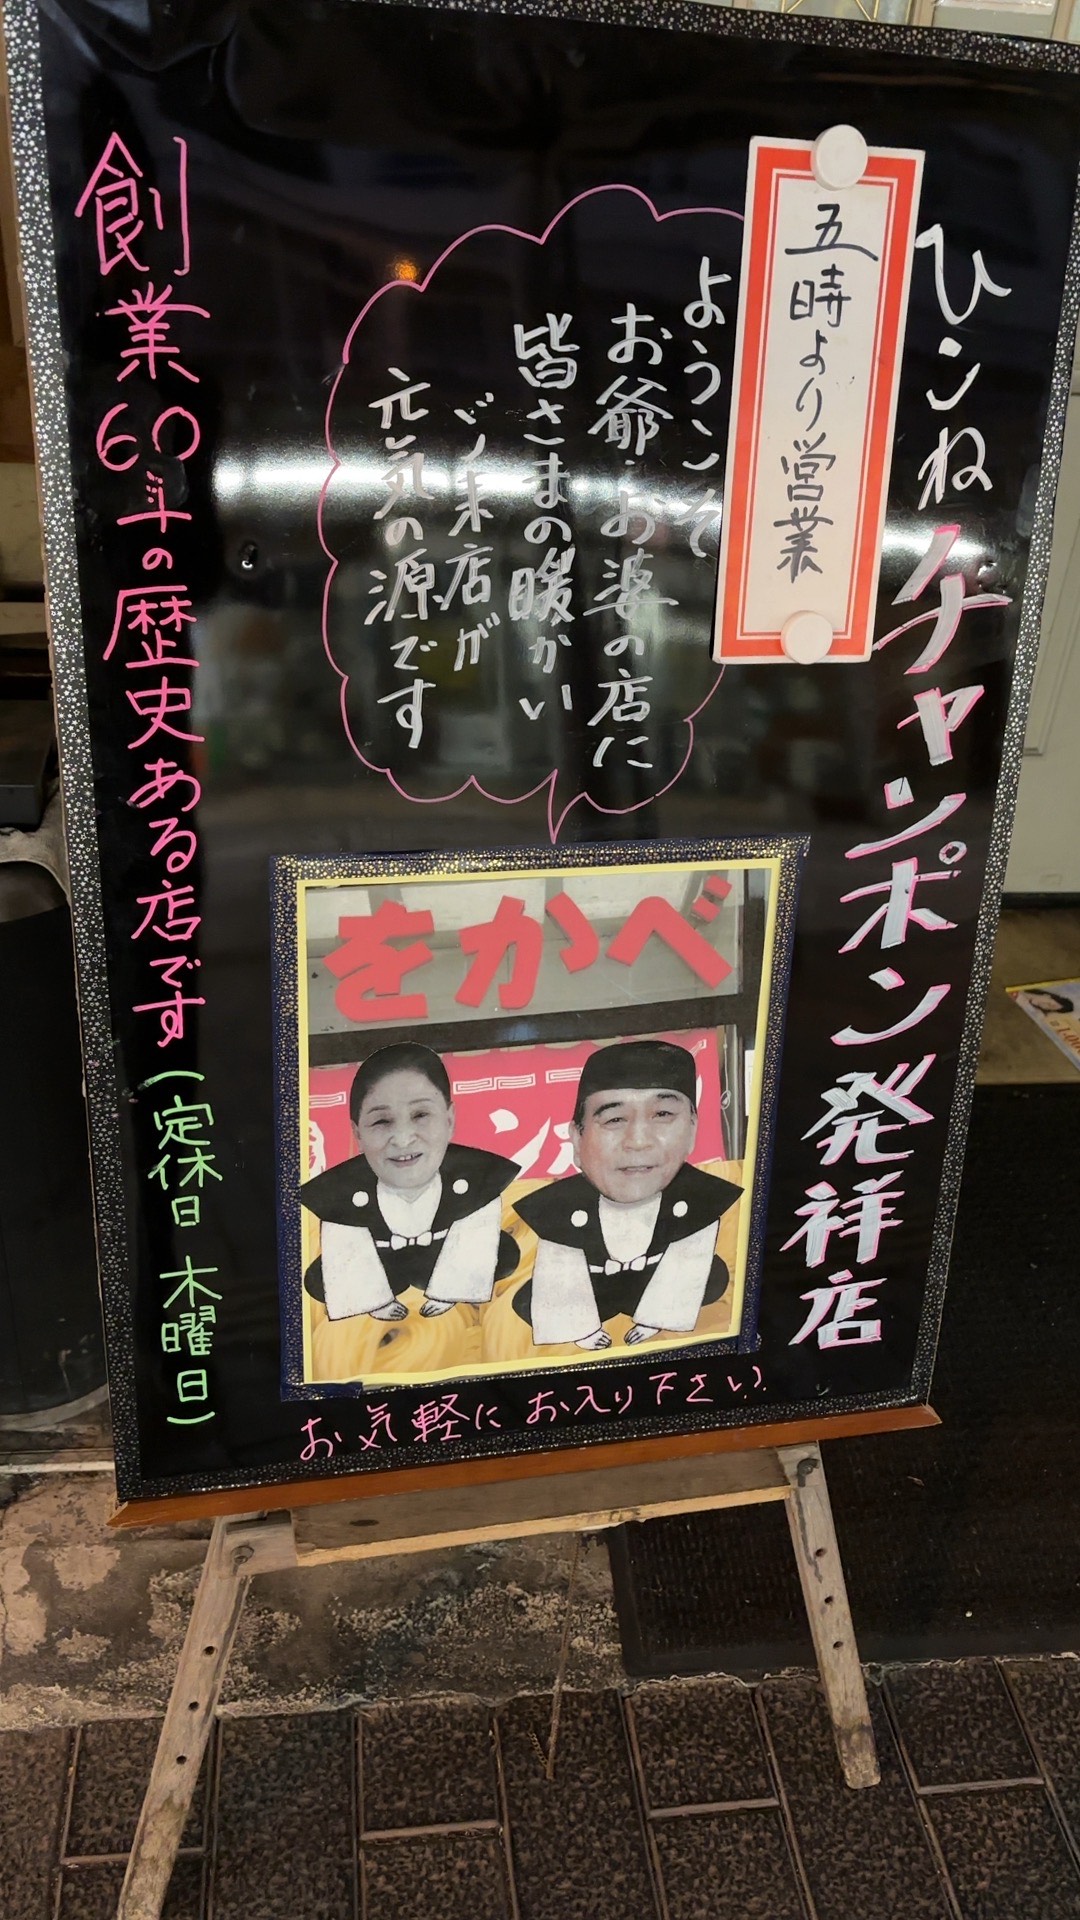 ひンねチャンポン発祥店
五時より営業
ようこそ
お爺・お婆の店に
皆さまの暖かい
ご来店が
元気の源です
創業60年の歴史ある店です(定休日 木曜日)
をかべ
お気軽にお入り下さい?